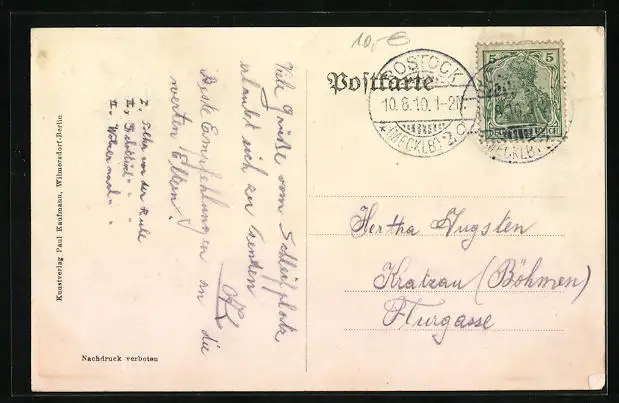 10,-€
Postkarte
ROSTOCK
10.6.10.1-2N
(MECKLB) 2.
5 5
DEUTSCHES REICH
Viele Grüße vom Schleifplatz
erlaubt sich zu senden
Beste Empfehlungen an die
werten Eltern!
I, vor der
II,
II,
Hertha Augsten
Kratzau (Böhmen)
Flurgasse
Kunstverlag Paul Kaufmann, Wilmersdorf-Berlin
Nachdruck verboten